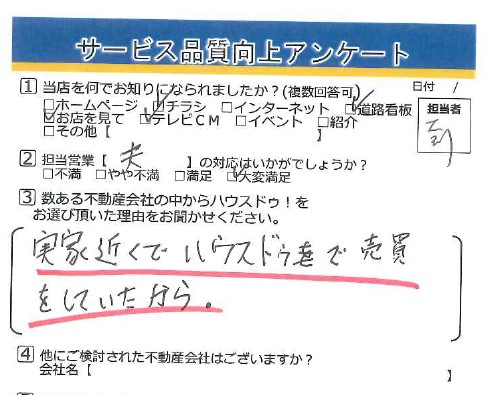 サービス品質向上アンケート
1 当店を何でお知りになられましたか?(複数回答可)
日付 /
□ホームページ ☑チラシ □インターネット ☑道路看板
担当者
☑お店を見て ☑テレビCM □イベント □紹介
□その他【 】
2 担当営業【 】の対応はいかがでしょうか?
□不満 □やや不満 □満足 ☑大変満足
3 数ある不動産会社の中からハウスドゥ!を
お選び頂いた理由をお聞かせください。
実家近くでハウスドゥ
で売買
をしていたから。
4 他にご検討された不動産会社はございますか?
会社名【 】